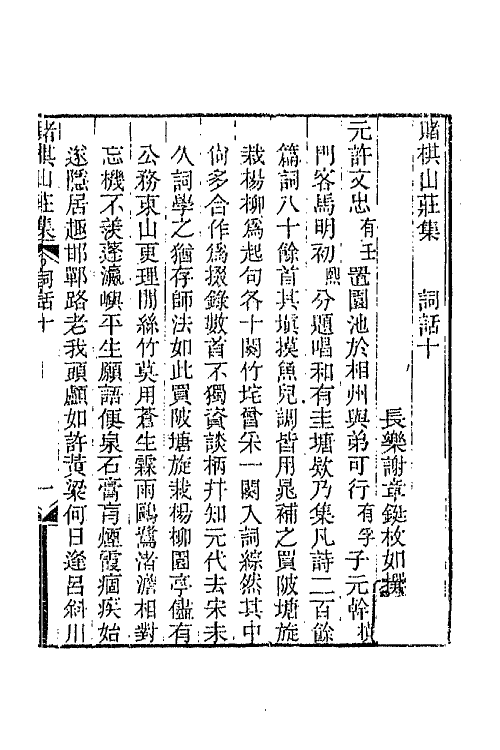 賭棋山莊集　詞話十
長樂謝章鋌枚如撰
元許文忠有壬置園池於相州與弟可行有孚子元幹楨
門客馬明初熙分題唱和有圭塘欵乃集凡詩二百餘
篇詞八十餘首其塡摸魚兒調皆用晁補之買陂塘旋
栽楊柳爲起句各十闋竹垞曾采一闋入詞綜然其中
尙多合作爲掇錄數首不獨資談柄幷知元代去宋未
久詞學之猶存師法如此買陂塘旋栽楊柳園亭儘有
公務東山更理閒絲竹莫用蒼生霖雨鷗鷺渚澹相對
忘機不羨蓬瀛嶼平生願語便泉石膏肓煙霞痼疾始
遂隱居趣邯鄲路老我頭顱如許黃粱何日逢呂斜川
賭棋山莊集　詞話十　一